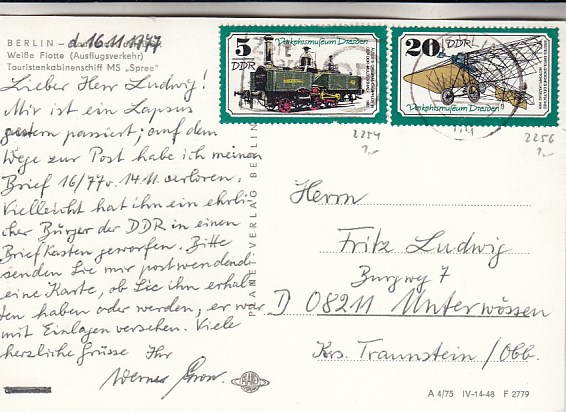 BERLIN – d. 16.11.1977
Weiße Flotte (Ausflugsverkehr)
Touristenkabinenschiff MS „Spree"
Lieber Herr Ludwig!
Mir ist ein Lapsus
gestern passiert; auf dem
Wege zur Post habe ich meinen
Brief 16/77 v. 14.11. verloren.
Vielleicht hat ihn ein ehrli-
cher Bürger der DDR in einen
Briefkasten geworfen. Bitte
senden Sie mir postwendend
eine Karte, ob Sie ihn erhal-
ten haben oder werden, er war
mit Einlagen versehen. Viele
herzliche Grüsse Ihr
Werner
PLANET-VERLAG BERLIN
5
DDR
Verkehrsmuseum Dresden
20
DDR
Verkehrsmuseum Dresden
2254
2256
Herrn
Fritz Ludwig
Burgweg 7
D 08211 Unterwössen
Krs. Traunstein/Obb.
PLANET
A 4/75 IV-14-48 F 2779